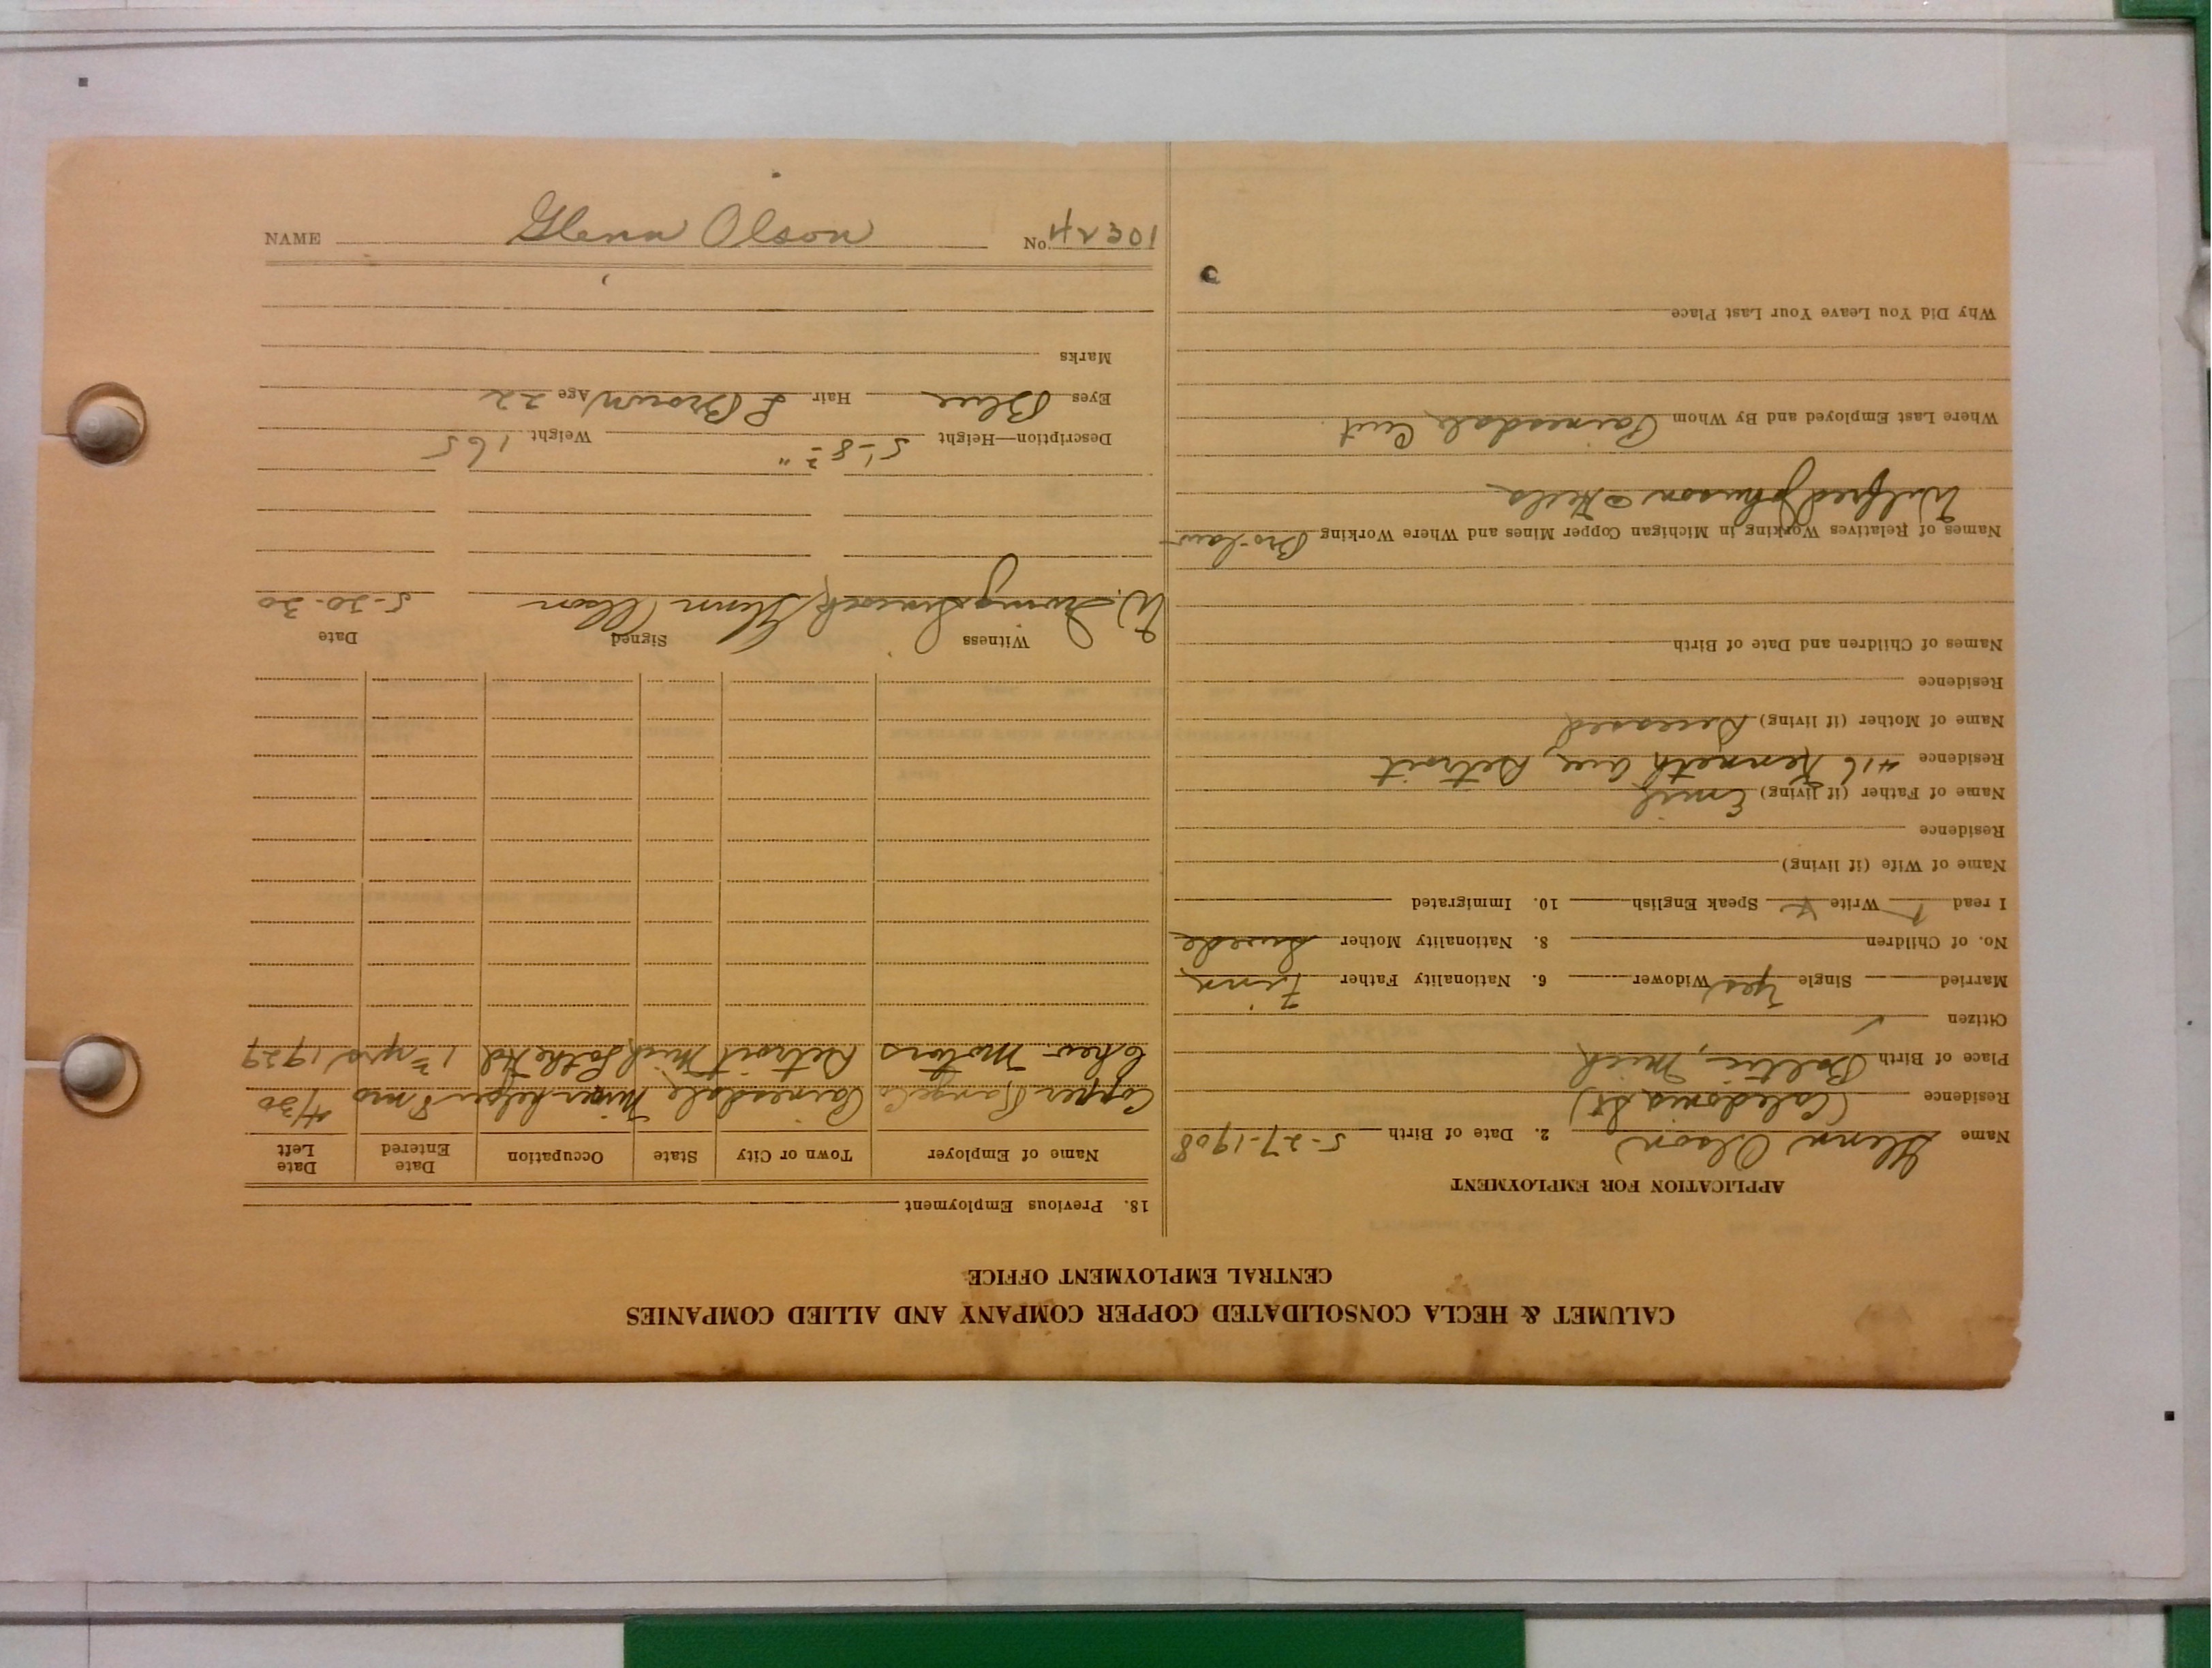 CALUMET & HECLA CONSOLIDATED COPPER COMPANY AND ALLIED COMPANIES
CENTRAL EMPLOYMENT OFFICE
APPLICATION FOR EMPLOYMENT
Name Glenn Olson 2. Date of Birth 5-27-1908
Residence (Caledonia St)
Place of Birth Baltic, Mich
Citizen ✓
Married Single Yes Widower 6. Nationality Father Finn
No. of Children 8. Nationality Mother Swede
I read Write Speak English 10. Immigrated
Name of Wife (if living)
Residence
Name of Father (if living) Emil
Residence 416 Kenneth Ave, Detroit
Name of Mother (if living) Deceased
Residence
Names of Children and Date of Birth
Names of Relatives Working in Michigan Copper Mines and Where Working Bro-law
Wilfred Johnson
Where Last Employed and By Whom Painesdale
Why Did You Leave Your Last Place
18. Previous Employment
Name of Employer Town or City State Occupation Date Entered Date Left
Copper Range Co Painesdale Miner helper 8 mos 4/30
Chev. Motors Detroit Mich Lathe Hd yrs 1929
Witness Signed Date
W. Glenn Olson 5-20-30
Description—Height 5'-8 Weight 165
Eyes Blue Hair L Brown Age 22
Marks
NAME Glenn Olson No.